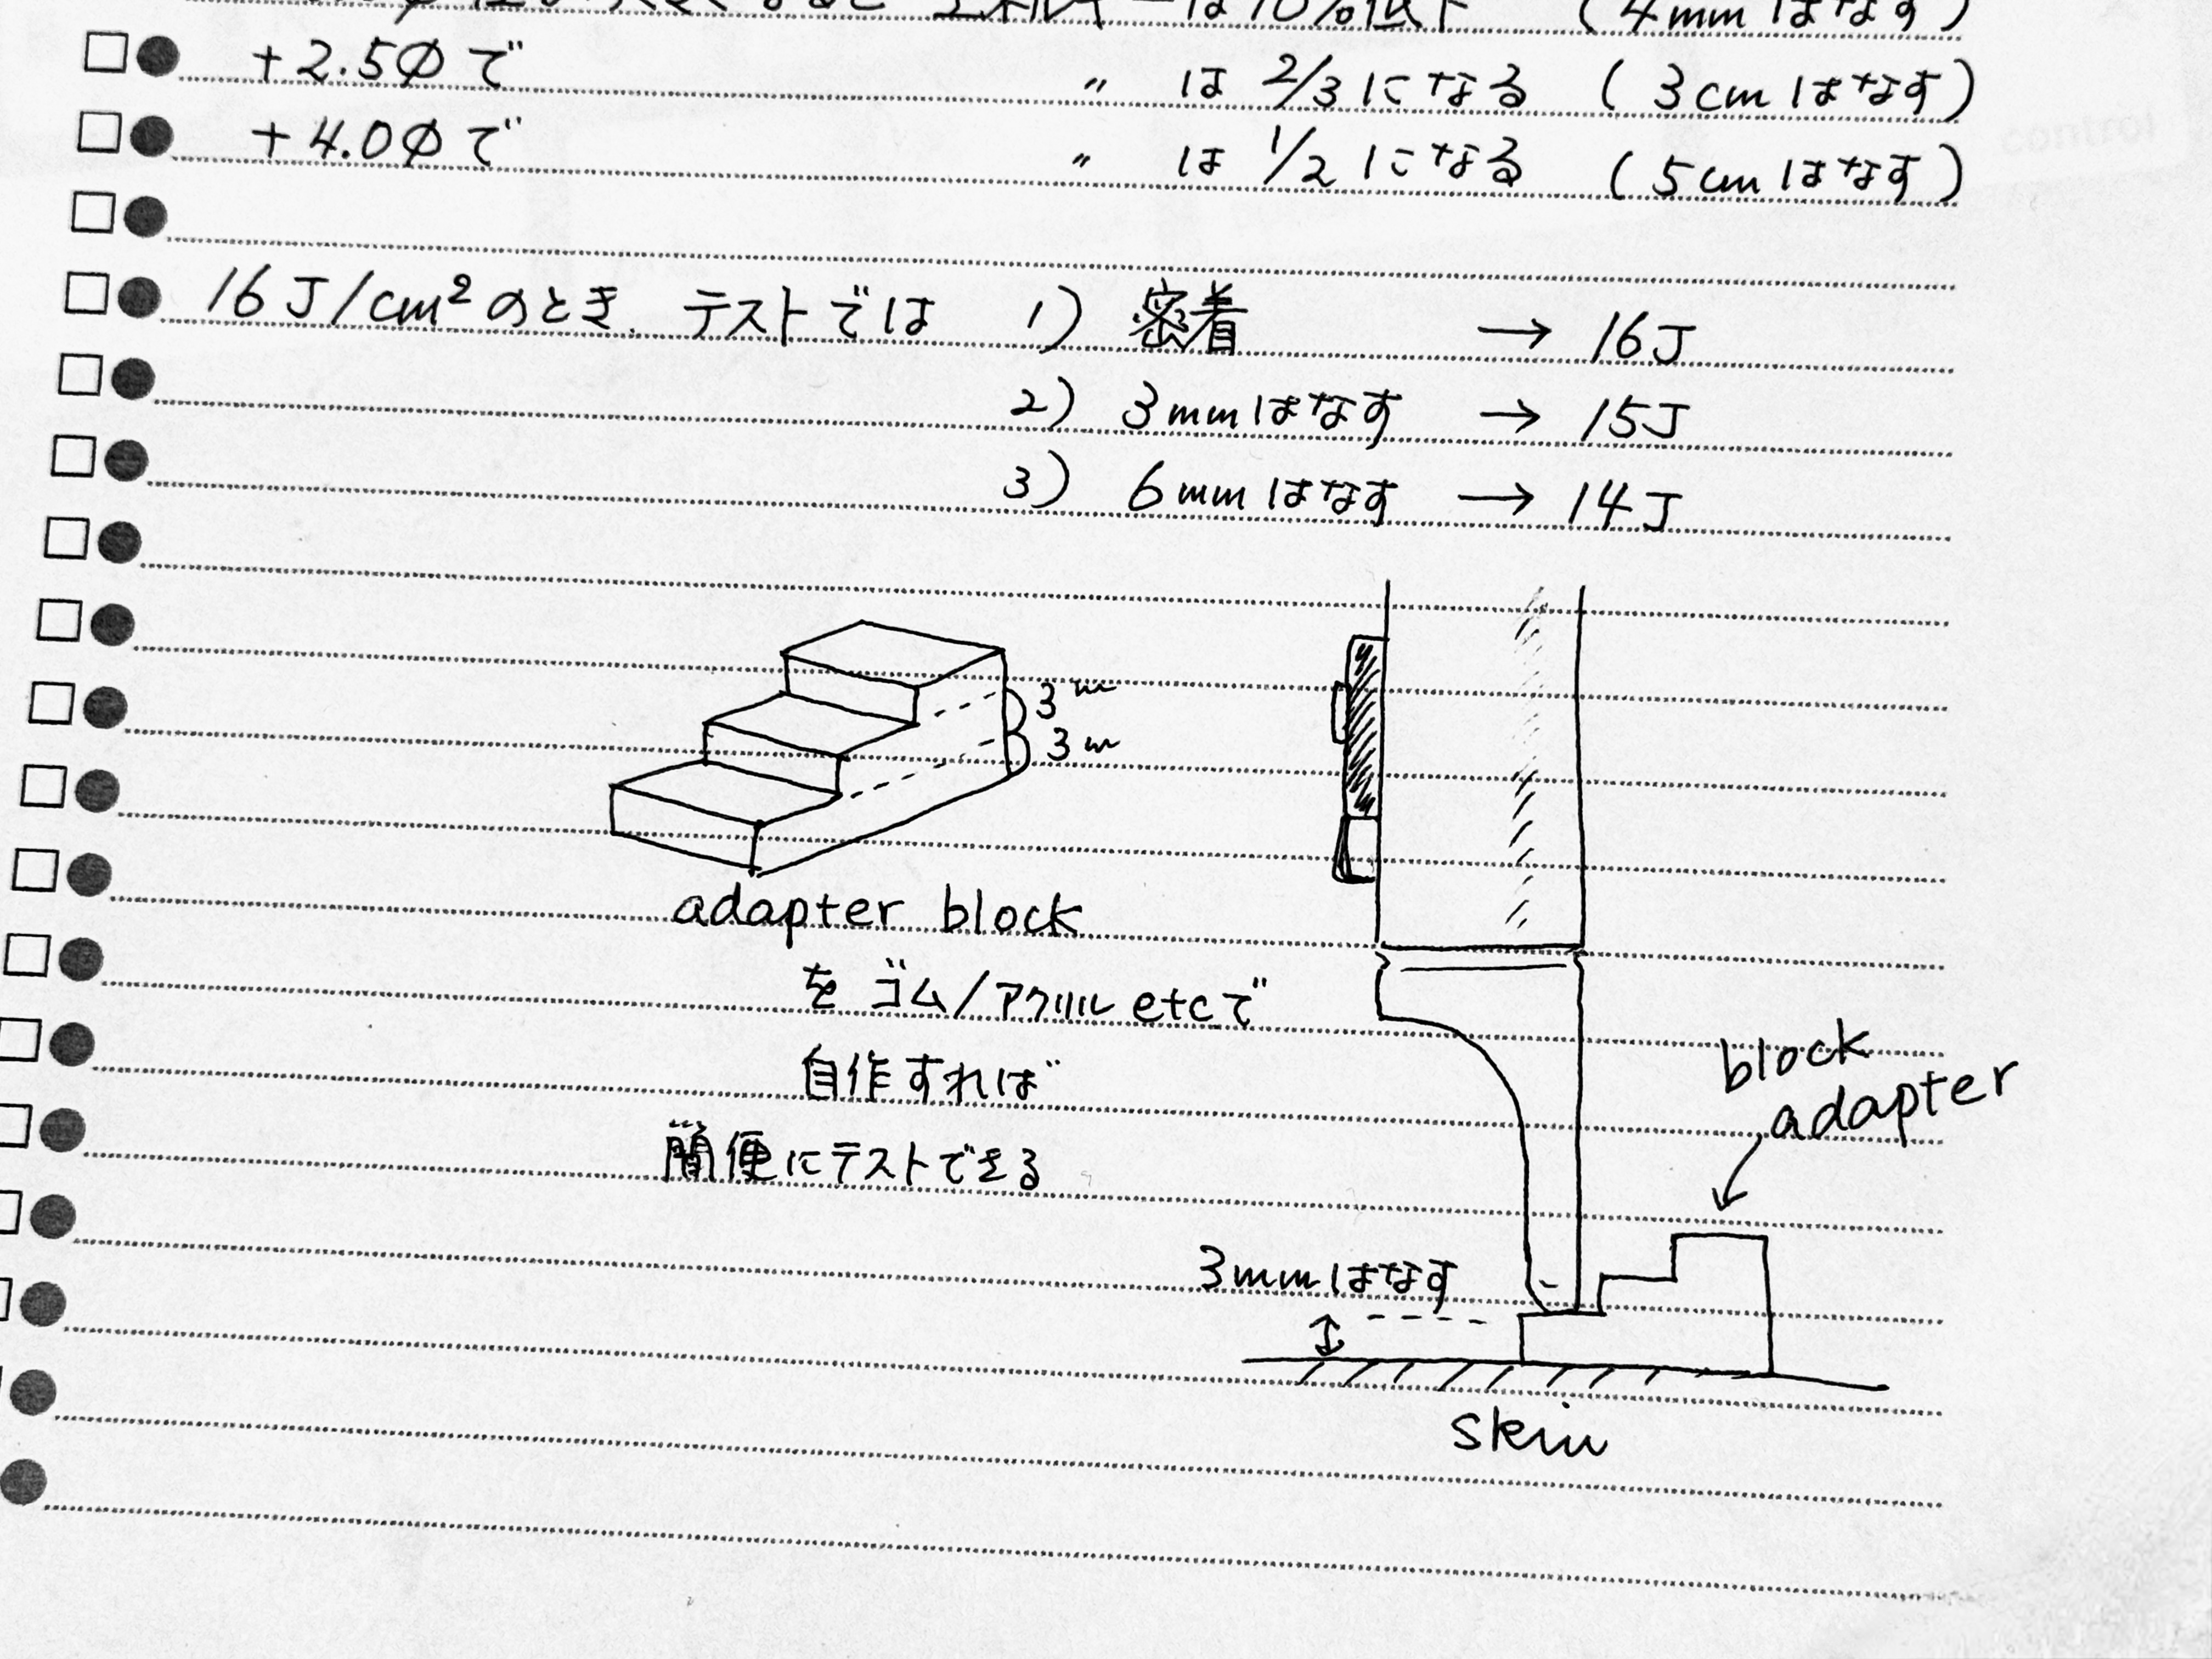 は10%以下 (4mmはなす)
+2.5φで 〃 は 2/3になる (3cmはなす)
+4.0φで 〃 は 1/2になる (5cmはなす)
16J/cm²のとき. テストでは 1) 密着 → 16J
2) 3mmはなす → 15J
3) 6mmはなす → 14J
3m
3m
adapter block
を ゴム/アクリル etcで
自作すれば
簡便にテストできる
block
adapter
3mmはなす
skin
control